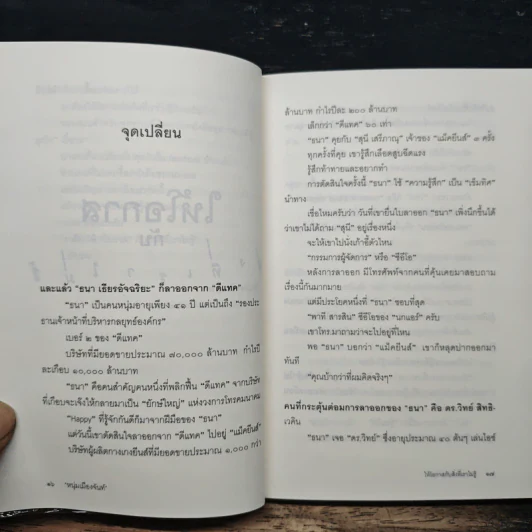 จุดเปลี่ยน
และแล้ว "ธนา เธียรอัจฉริยะ" ก็ลาออกจาก "ดีแทค"
"ธนา" เป็นคนหนุ่มอายุเพียง ๔๑ ปี แต่เป็นถึง "รองประ
ธานเจ้าหน้าที่บริหารกลยุทธ์องค์กร"
เบอร์ ๒ ของ "ดีแทค"
บริษัทที่มียอดขายประมาณ ๗๐,๐๐๐ ล้านบาท กำไรปี
ละเกือบ ๑๐,๐๐๐ ล้านบาท
"ธนา" คือคนสำคัญคนหนึ่งที่พลิกฟื้น "ดีแทค" จากบริษัท
ที่เกือบจะเจ๊งให้กลายมาเป็น "ยักษ์ใหญ่" แห่งวงการโทรคมนาคม
"Happy" ที่รู้จักกันดีก็มาจากฝีมือของ "ธนา"
แต่วันนี้เขาตัดสินใจลาออกจาก "ดีแทค" ไปอยู่ "แม็คยีนส์"
บริษัทผู้ผลิตกางเกงยีนส์ที่มียอดขายประมาณ ๑,๐๐๐ กว่า
๑๖ "หนุ่มเมืองจันท์"
ล้านบาท กำไรปีละ ๒๐๐ ล้านบาท
เล็กกว่า "ดีแทค" ๖๐ เท่า
"ธนา" คุยกับ "สุนี เสรีภาณุ" เจ้าของ "แม็คยีนส์" ๓ ครั้ง
ทุกครั้งที่คุย เขารู้สึกเลือดสูบฉีดแรง
รู้สึกท้าทายและอยากทำ
การตัดสินใจครั้งนี้ "ธนา" ใช้ "ความรู้สึก" เป็น "เข็มทิศ"
นำทาง
เชื่อไหมครับว่า วันที่เขายื่นใบลาออก "ธนา" เพิ่งนึกขึ้นได้
ว่าเขาไม่ได้ถาม "สุนี" อยู่เรื่องหนึ่ง
จะให้เขาไปนั่งเก้าอี้ตัวไหน
"กรรมการผู้จัดการ" หรือ "ซีอีโอ"
หลังการลาออก มีโทรศัพท์จากคนที่คุ้นเคยมาสอบถาม
เรื่องนี้กันมากมาย
แต่มีประโยคหนึ่งที่ "ธนา" ชอบที่สุด
"พาที สารสิน" ซีอีโอของ "นกแอร์" ครับ
เขาโทร.มาถามว่าจะไปอยู่ที่ไหน
พอ "ธนา" บอกว่า "แม็คยีนส์" เขาก็หลุดปากออกมา
ทันที
"คุณบ้ากว่าที่ผมคิดจริงๆ"
คนที่กระตุ้นต่อมการลาออกของ "ธนา" คือ ดร.วิทย์ สิทธิ-
เวคิน
"ธนา" เจอ "ดร.วิทย์" ซึ่งอายุประมาณ ๔๐ ต้นๆ เล่นไอซ์
ให้โอกาสกับสิ่งที่เราไม่รู้ ๑๗